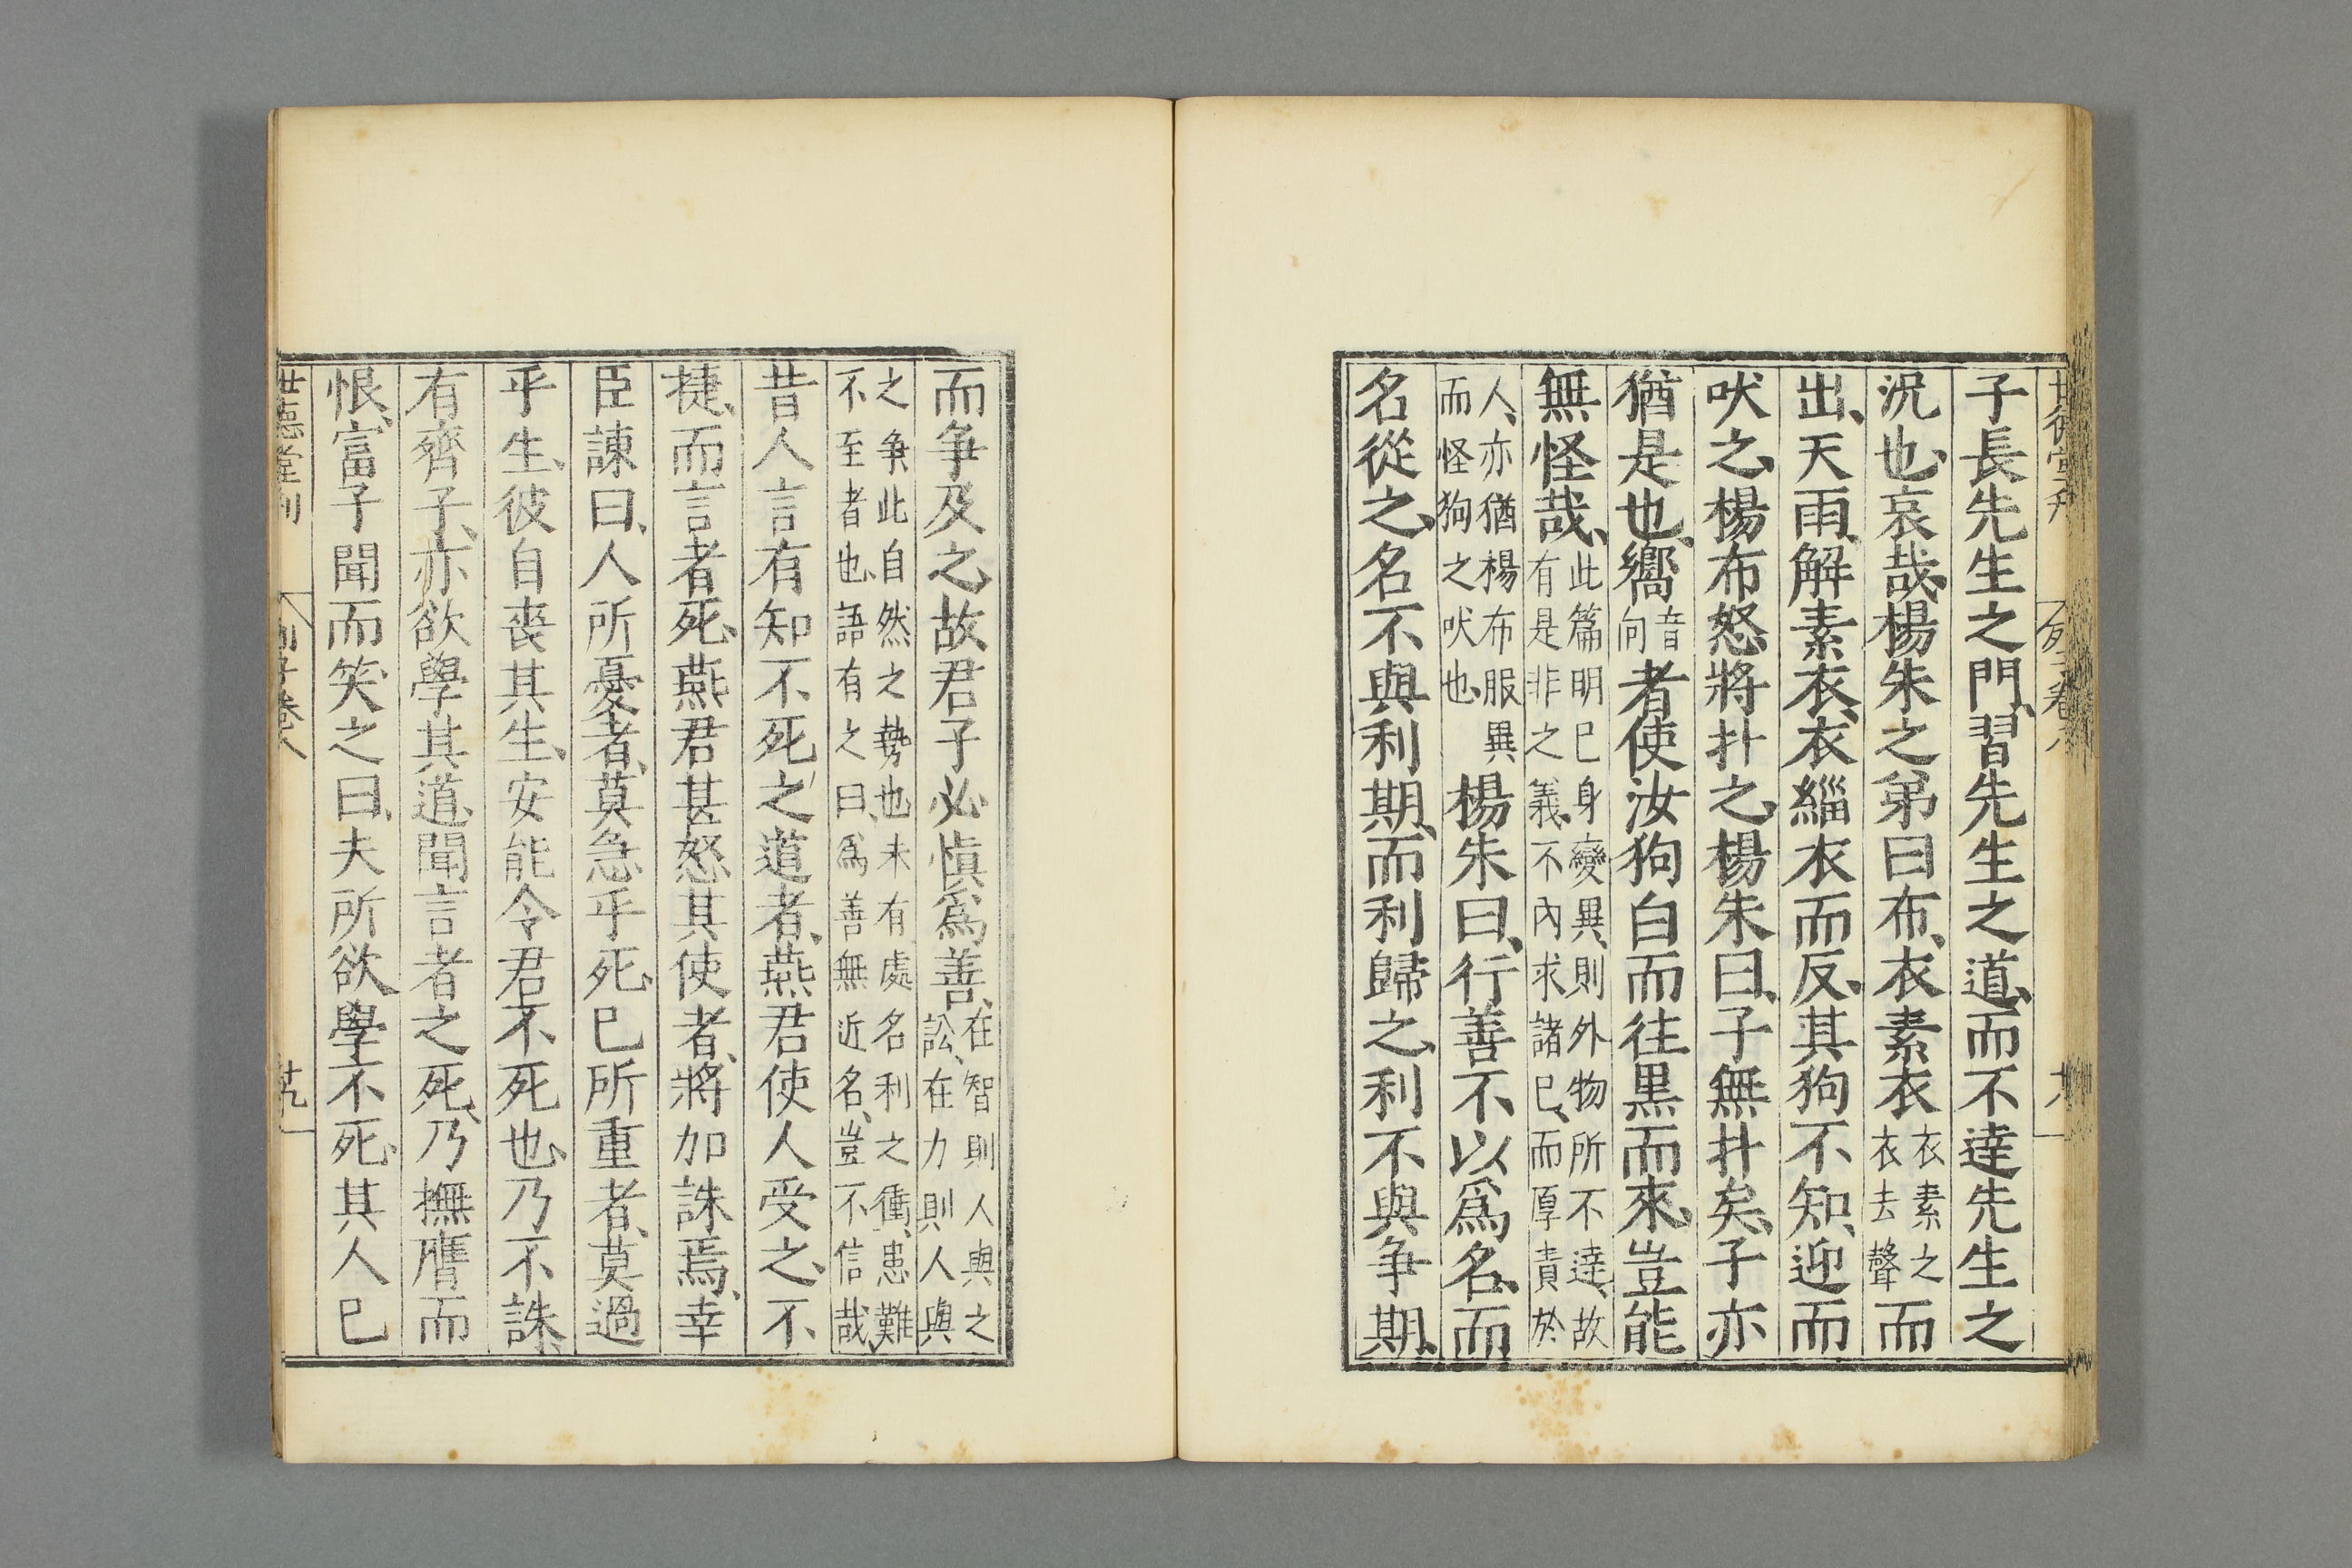 子長先生之門、習先生之道、而不達先生之
況也、哀哉、楊朱之弟曰布、衣素衣衣素之衣去聲而
出、天雨、解素衣、衣緇衣而反、其狗不知、迎而
吠之、楊布怒、將扑之、楊朱曰、子無扑矣、子亦
猶是也、嚮音向者使汝狗白而往黒而來、豈能
無怪哉、此篇明巳身變異、則外物所不達、故有是非之義、不內求諸巳、而厚責於
人、亦猶楊布服異而怪狗之吠也、楊朱曰、行善不、以爲名、而
名從之、名不與利期、而利歸之、利不與争期、
而争及之、故君子必慎爲善、在智則人與之訟、在力則人與
之争此自然之勢也未有處名利之衝、患難不至者也、語有之曰、爲善無近名、豈不信哉、
昔人言有知不死之道者、燕君使人受之、不
捷、而言者死、燕君甚怒、其使者、將加誅焉、幸
臣諫曰、人所憂者、莫急乎死、巳所重者、莫過
乎生、彼自喪其生、安能令君不死也、乃不誅、
有齊子、亦欲學其道、聞言者之死、乃撫膺而
恨、富子聞而笑之曰、夫所欲學不死、其人巳
世德堂刊 列子卷八 廿九